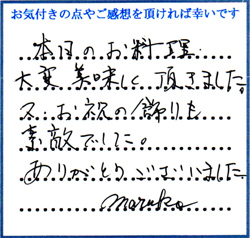 お気付きの点やご感想を頂ければ幸いです
本日のお料理
大変美味しく頂きました。
又、お祝の飾りも
素敵でした。
ありがとうございました
maruko